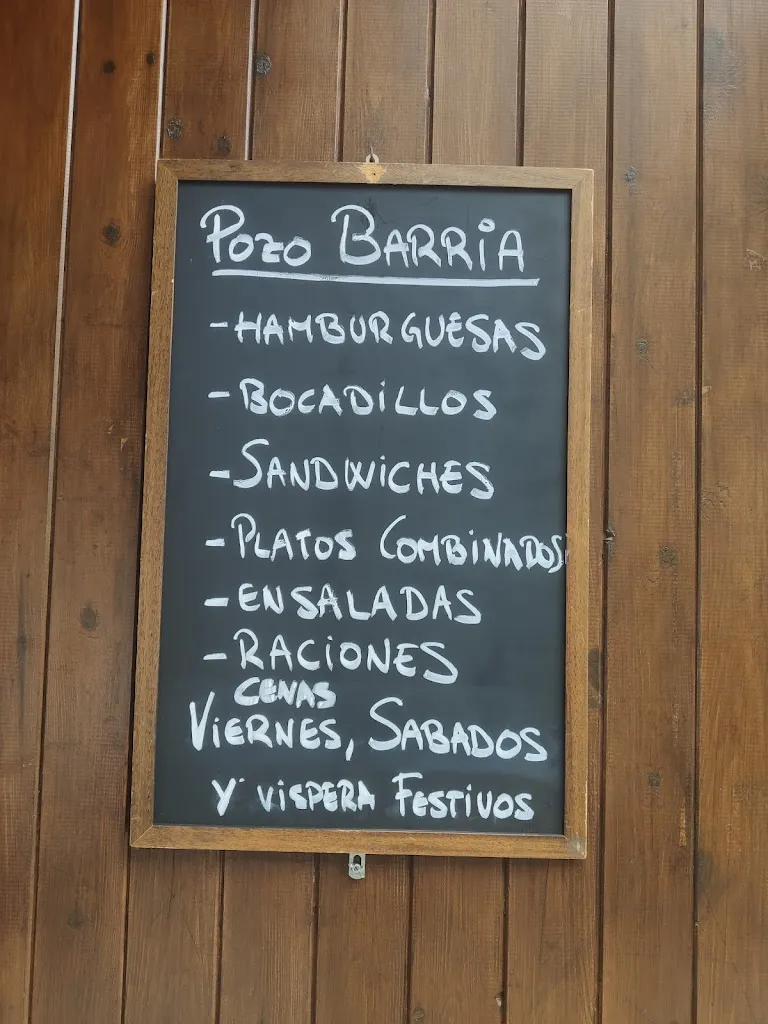 Pozo BARRiA
- HAMBURGUESAS
- BOCADiLLOS
- SANDWiCHES
- PLATOS COMBiNADOS
- ENSALADAS
- RACiONES
CENAS
ViERNES, SABADOS
Y ViSPERA FESTiVOS